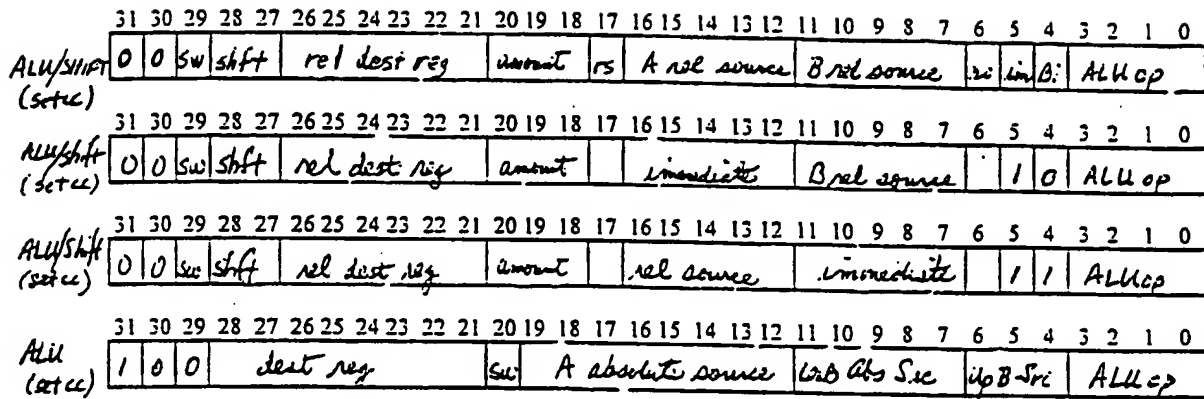 31 30 29 28 27 26 25 24 23 22 21 20 19 18 17 16 15 14 13 12 11 10 9 8 7 6 5 4 3 2 1 0
ALU/SHIFT 0 0 sw shft rel dest reg amount rs A rel source B rel source im Bi ALU op
(setcc)
31 30 29 28 27 26 25 24 23 22 21 20 19 18 17 16 15 14 13 12 11 10 9 8 7 6 5 4 3 2 1 0
ALU/shift 0 0 sw shft rel dest reg amount immediate B rel source 1 0 ALU op
(setcc)
31 30 29 28 27 26 25 24 23 22 21 20 19 18 17 16 15 14 13 12 11 10 9 8 7 6 5 4 3 2 1 0
ALU/Shift 0 0 sw shft rel dest reg amount rel source immediate 1 1 ALU op
(setcc)
31 30 29 28 27 26 25 24 23 22 21 20 19 18 17 16 15 14 13 12 11 10 9 8 7 6 5 4 3 2 1 0
ALU 1 0 0 dest reg sw A absolute source B Abs Src B-Src ALU op
(setcc)